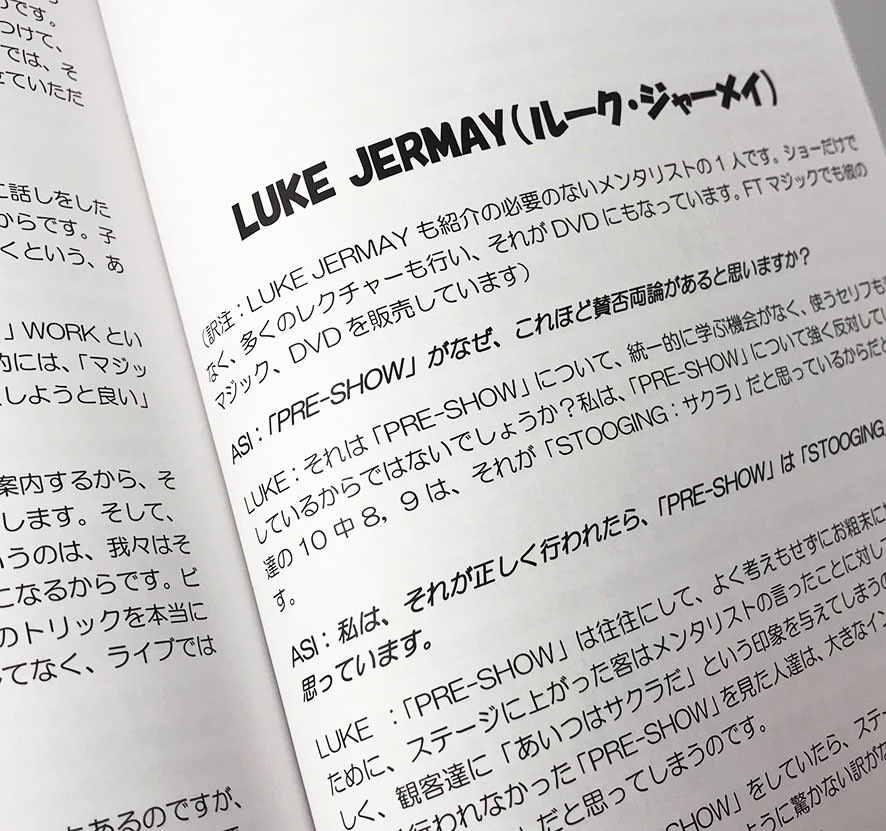 です。
つけて、
では、そ
ていただ
に話しをした
からです。子
くという、あ
」WORKとい
的には、「マジッ
しようと良い」
案内するから、そ
します。そして、
うのは、我々はそ
になるからです。ビ
のトリックを本当に
てなく、ライブでは
とあるのですが、
LUKE JERMAY(ルーク・ジャーメイ)
(訳注:LUKE JERMAYも紹介の必要のないメンタリストの1人です。ショーだけで
なく、多くのレクチャーも行い、それがDVDにもなっています。FTマジックでも彼の
マジック、DVDを販売しています)
ASI:「PRE-SHOW」がなぜ、これほど賛否両論があると思いますか?
LUKE:それは「PRE-SHOW」について、統一的に学ぶ機会がなく、使うセリフも
しているからではないでしょうか?私は、「PRE-SHOW」について強く反対してい
達の10中8,9は、それが「STOOGING:サクラ」だと思っているからだと
す。
ASI:私は、それが正しく行われたら、「PRE-SHOW」は「STOOGING
思っています。
LUKE :「PRE-SHOW」は往往にして、よく考えもせずにお粗末に
ために、ステージに上がった客はメンタリストの言ったことに対して
しく、観客達に「あいつはサクラだ」という印象を与えてしまうの
く行われなかった「PRE-SHOW」を見た人達は、大きなイン
」だと思ってしまうのです。
SHOW」をしていたら、ステー
ように驚かない訳がな